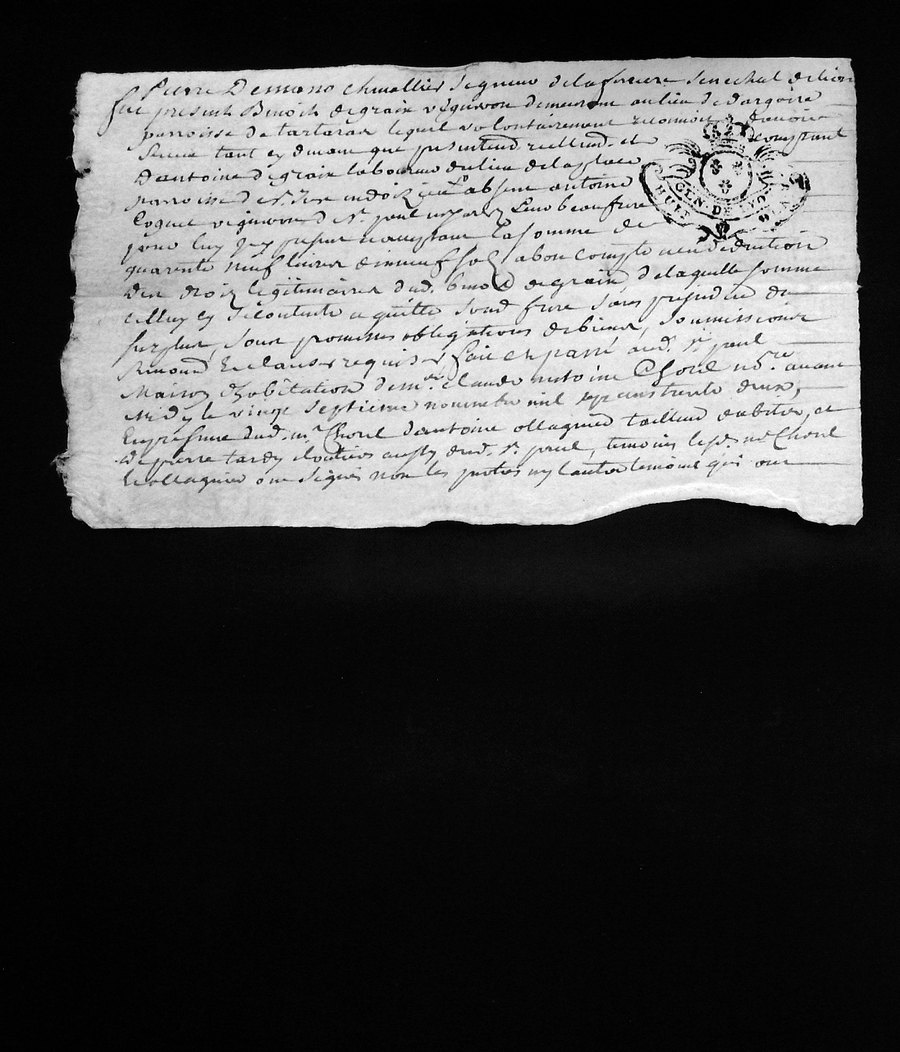 Pierre De masso chevallier seigneur de la ferriere senechal de lion
fut present Benoist degraix vigneron demeurant au lieu de dargoire
parroisse de tartaras lequel volontairement reconnoit d'avoir
receu tant cy devant que presentement et
D'antoine degraix laboureur du lieu de la place
parroisse de St absent antoine
Coquet vigneron de St paul son beaufrere
pour luy icy present acceptant la somme de
quarente neuf livres dixneuf sols a bon compte et en deduction
des droits legitimaires dud. benoit degraix de laquelle somme
il se contente a quitte sond frere sans prejudice du
surplus, sous promesses obligations de biens, soumissions
Renond et clauses requises, fait et passé aud. St paul
Maison d'habitation de me. claude antoine Chorel nore avant
Midy le vingt septieme novembre mil sept cens trente deux,
En presence dud. me Chorel d'antoine ollagnier tailleur d'abits, et
de pierre tardy cloutier dud. St paul, temoins led. me Chorel
et ollagnier ont signés non les parties ny l'autre temoins qui ont
GEN DE LYON
HUIT